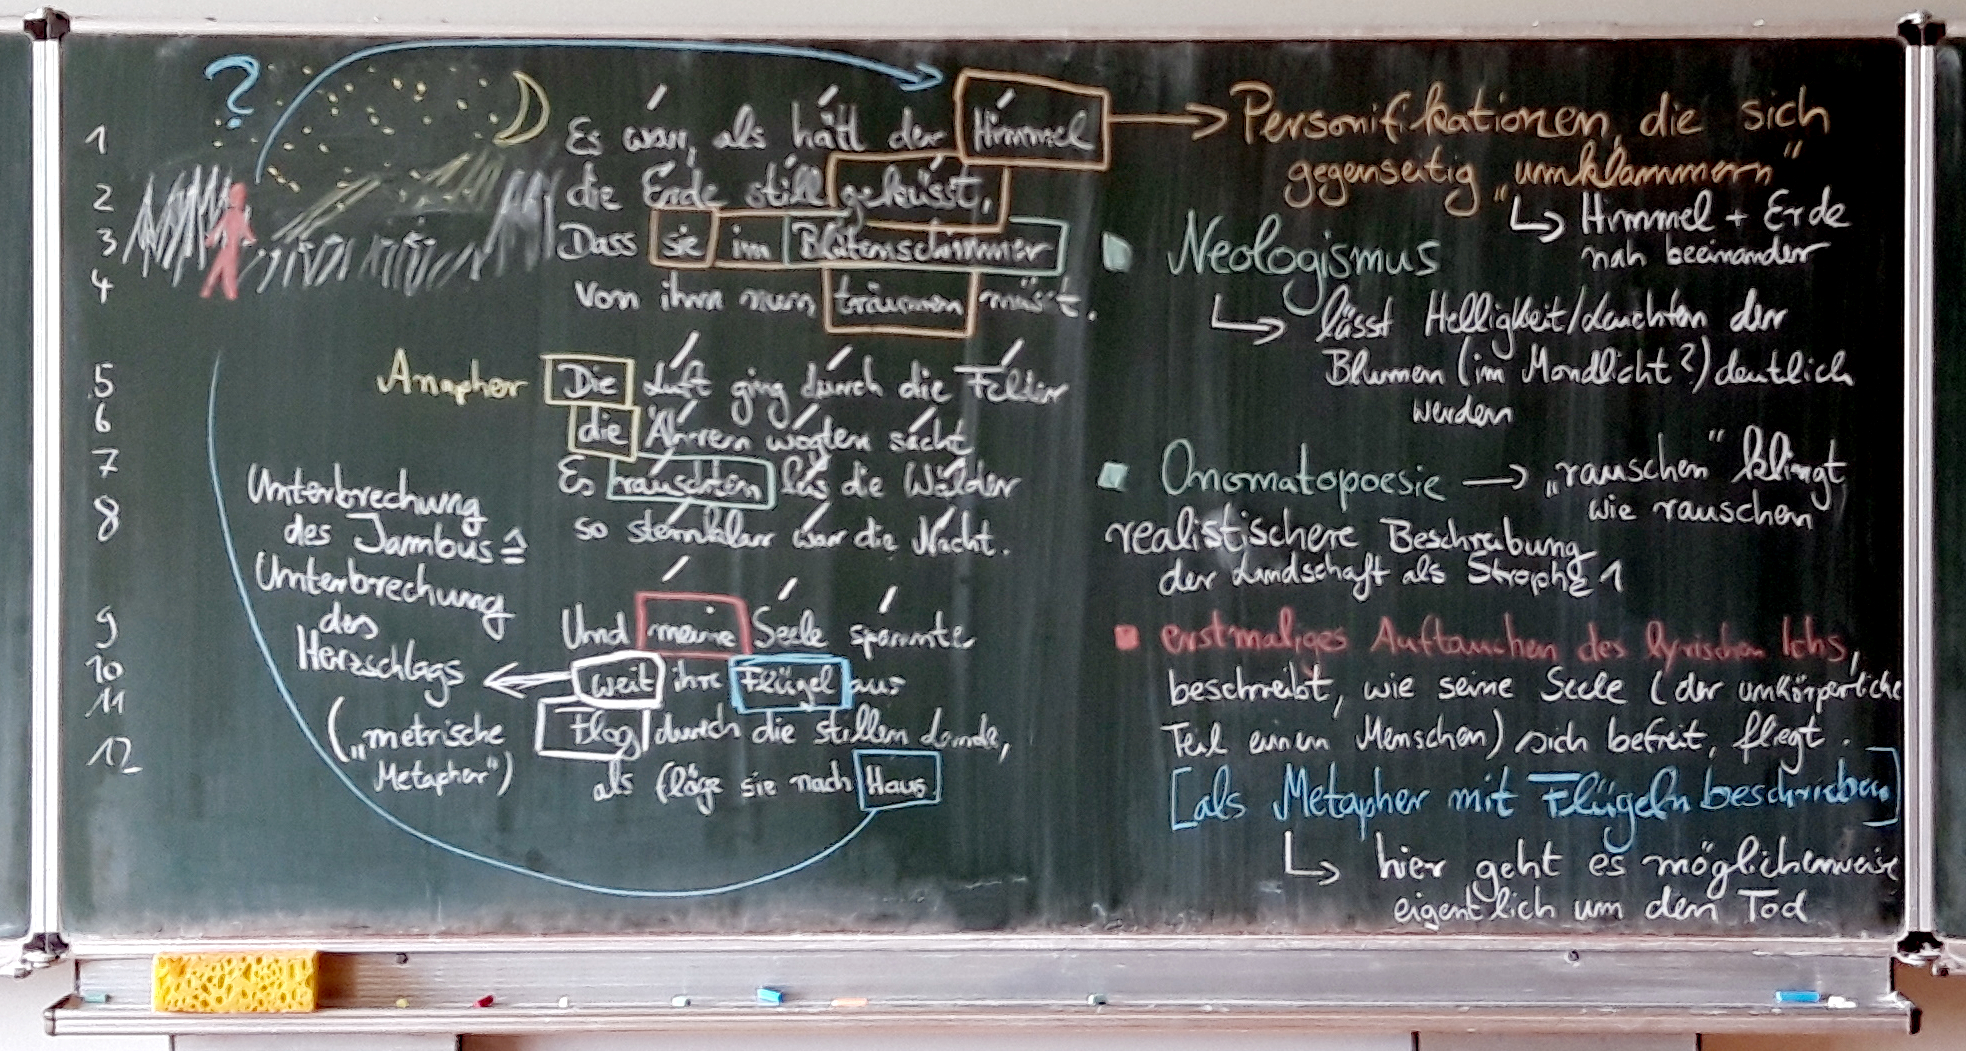 ?
1 Es war, als hätt der Himmel
2 die Erde still geküsst,
3 Dass sie im Blütenschimmer
4 von ihm nun träumen müsst.
Anapher
5 Die Luft ging durch die Felder
6 die Ähren wogten sacht
7 Es rauschten leis die Wälder
8 so sternklar war die Nacht.
9 Und meine Seele spannte
10 weit ihre Flügel aus
11 Flog durch die stillen Lande,
12 als flöge sie nach Haus
Unterbrechung
des Jambus ≙
Unterbrechung
des
Herzschlags
("metrische
Metapher")
Personifikationen, die sich
gegenseitig "umklammern"
↳ Himmel + Erde
nah beeinander
Neologismus
↳ lässt Helligkeit/Leuchten der
Blumen (im Mondlicht?) deutlich
werden
Onomatopoesie → "rauschen" klingt
wie rauschen
realistischere Beschreibung
der Landschaft als Strophe 1
erstmaliges Auftauchen des lyrischen Ichs,
beschreibt, wie seine Seele (der unkörperliche
Teil einen Menschen) sich befreit, fliegt.
[als Metapher mit Flügeln beschrieben]
↳ hier geht es möglicherweise
eigentlich um den Tod